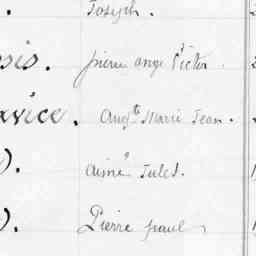 Joseph.
sis. pierre ange Victor
avice. Aug.te Marie Jean.
). aimé Jules.
). Pierre paul